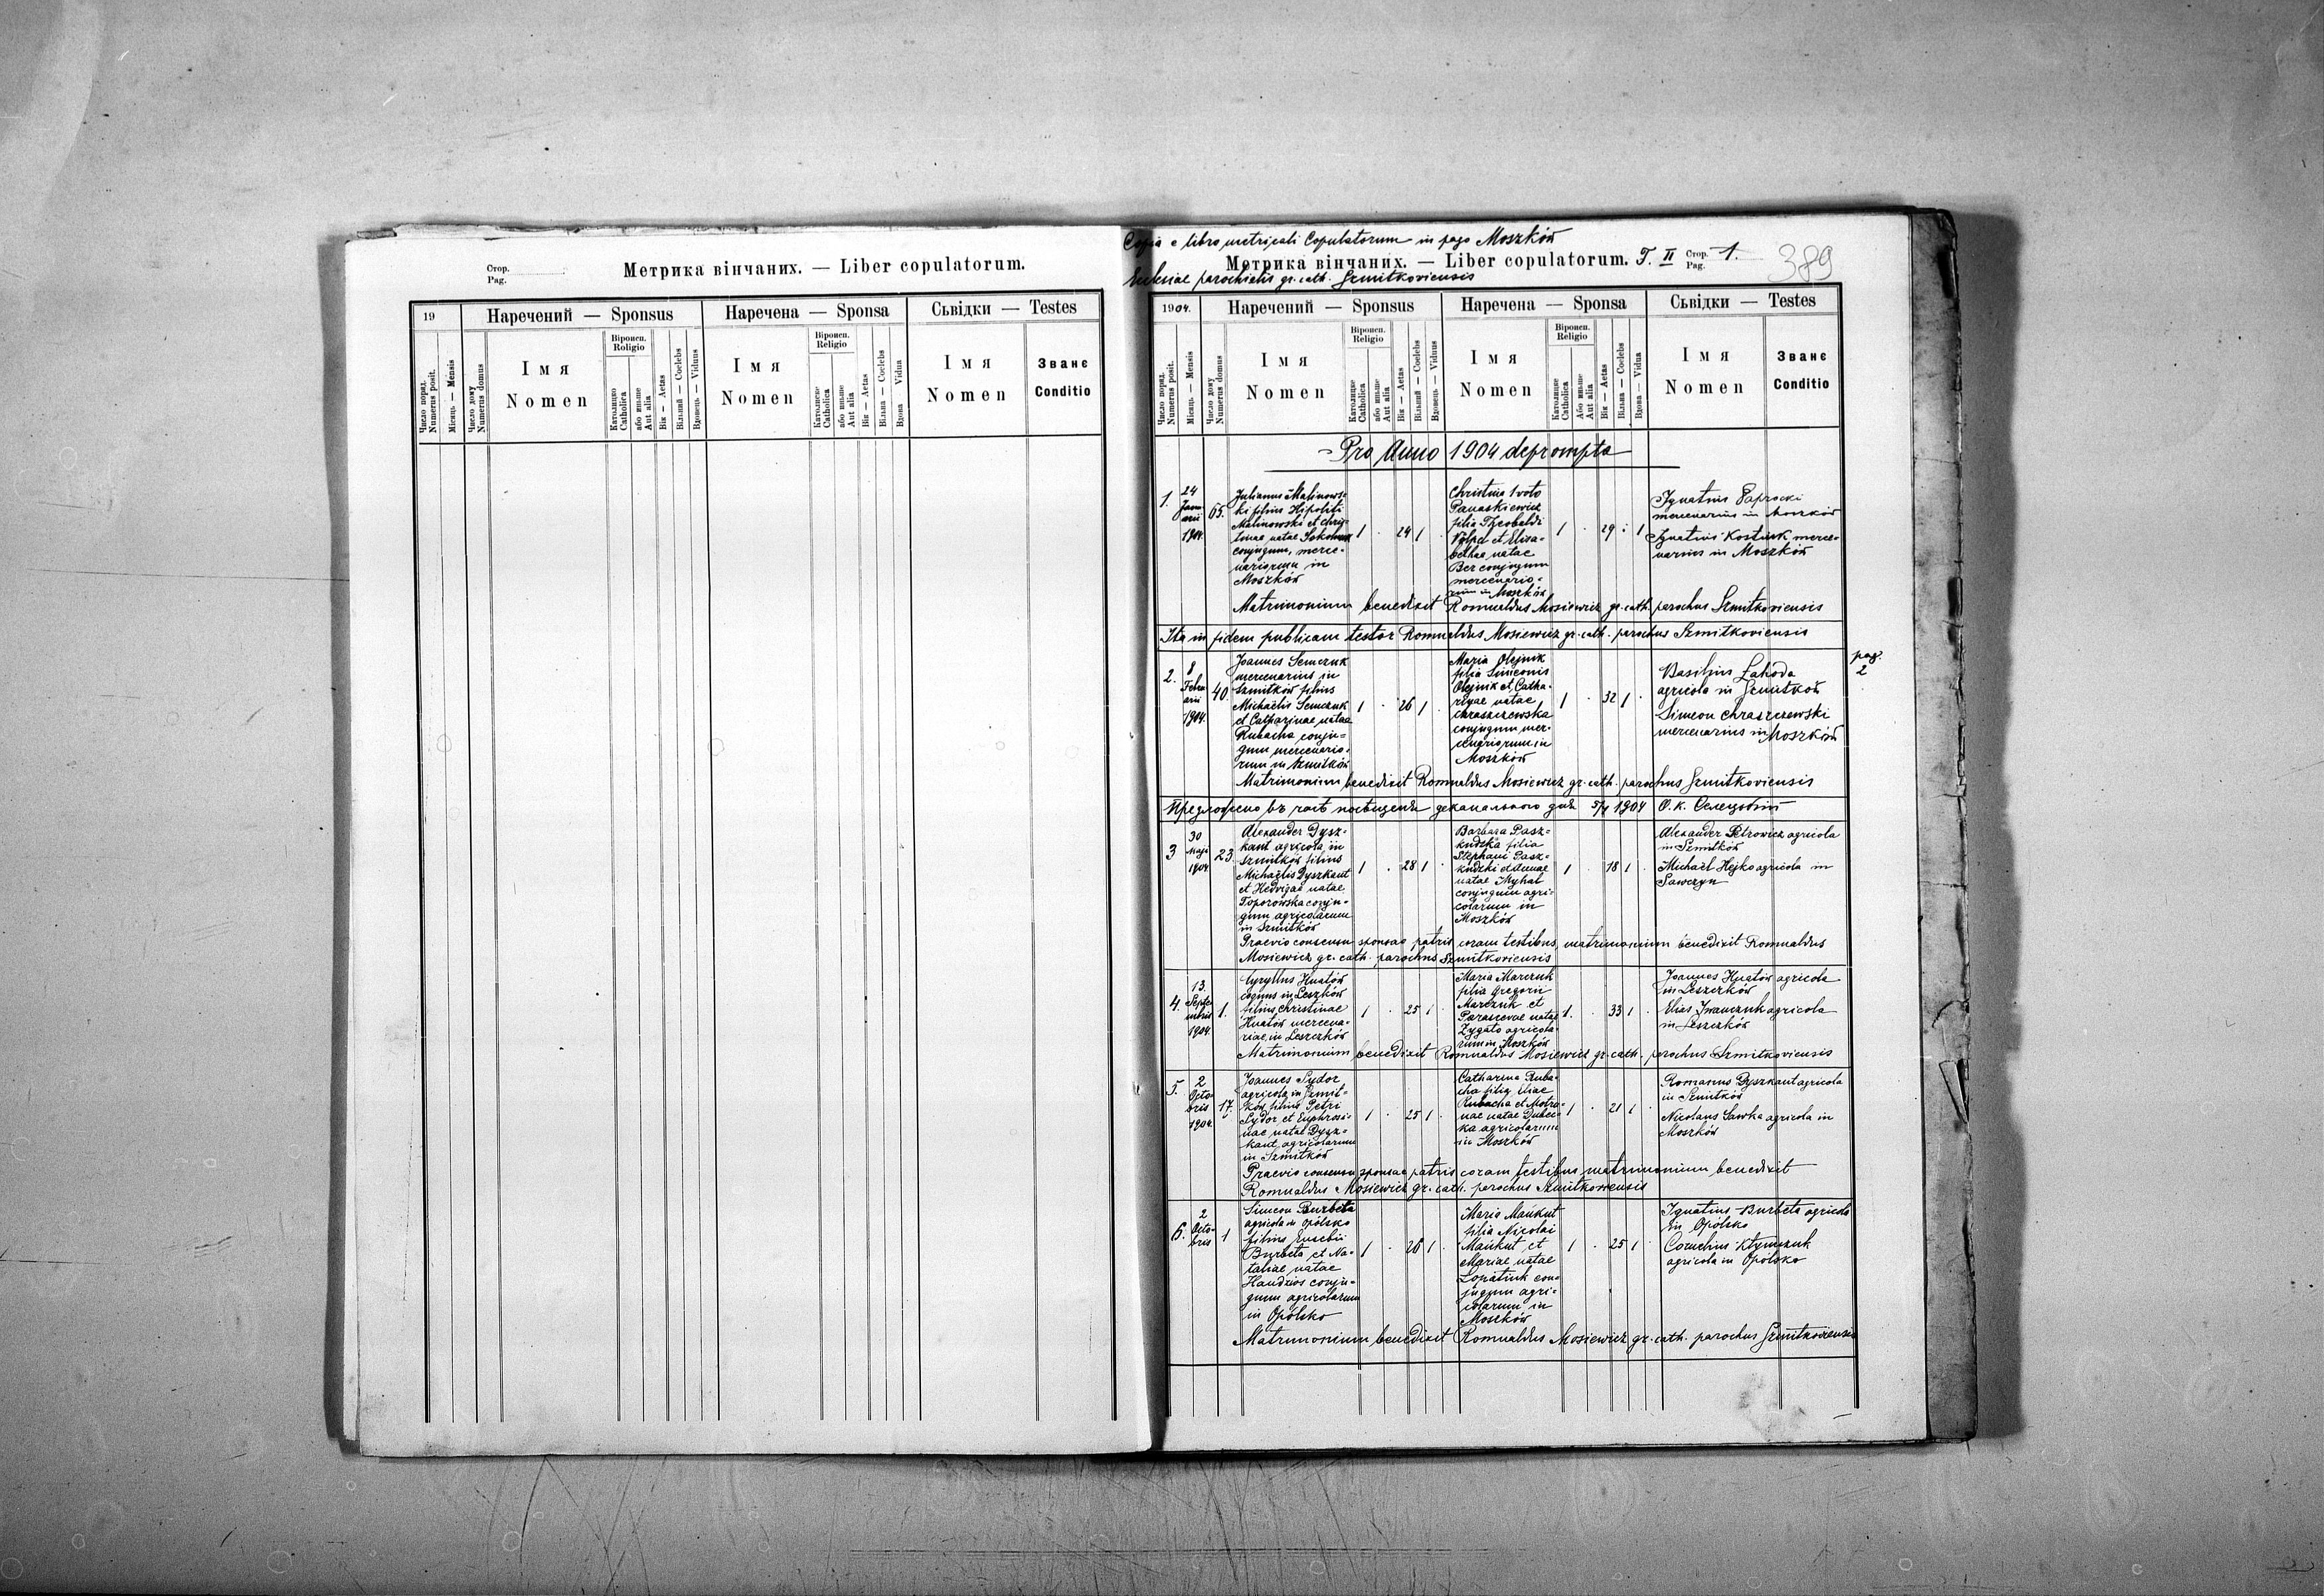 Стор.
Pag.
Метрика вінчаних. — Liber copulatorum.
19
Наречений — Sponsus
Наречена — Sponsa
Сьвідки — Testes
Число поряд.
Numerus posit.
Місяць — Mensis
Число дому
Numerus domus
І м я
N o m e n
Віроисп.
Religio
Католицке
Catholica
або иньше
Aut alia
Вік — Aetas
Вільний — Coelebs
Вдовець — Viduus
І м я
N o m e n
Віроисп.
Religio
Католицке
Catholica
або иньше
Aut alia
Вік — Aetas
Вільна — Coelebs
Вдова Vidua
І м я
N o m e n
Званє
Conditio
Copia e libro metricali Copulatorum in pago Moszków
Метрика вінчаних. — Liber copulatorum. T. II Стор. Pag. 1.
389
Ecclesiae parochialis gr. cath. Szmitkoviensis
1904.
Наречений — Sponsus
Наречена — Sponsa
Сьвідки — Testes
Число поряд.
Numerus posit.
Місяць — Mensis
Число дому
Numerus domus
І м я
N o m e n
Віроисп.
Religio
Католицке
Catholica
або иньше
Aut alia
Вік — Aetas
Вільний — Coelebs
Вдовець — Viduus
І м я
N o m e n
Віроисп.
Religio
Католицке
Catholica
Або иньше
Aut alia
Вік — Aetas
Вільна — Coelebs
Вдова — Vidua
І м я
N o m e n
Званє
Conditio
Pro Anno 1904 deprompta
1.
24
Janu
arii
1904.
65.
Julianus Malinows-
ki filius Hipoliti
Malinowski et Chris-
tinae natae
conjugum, merce-
nariorum in
Moszków
1 . 24 1
Christina 1 voto
Panaskiewicz
filia Theobaldi
et Elisa-
bethae natae
Ber conjugum
mercenario-
rum in Moszków
1 . 29 . 1
Ignatius Paprocki
mercenarius in Moszków
Ignatius Kostiuk merce-
narius in Moszków
Matrimonium benedixit Romualdus Mosiewicz gr. cath. parochus Szmitkoviensis
Ita in fidem publicam testor Romualdus Mosiewicz gr. cath. parochus Szmitkoviensis
2.
8
Febru
arii
1904.
40.
Joannes Semczuk
mercenarius in
Szmitków filius
Michaëlis Semczuk
et Catharinae natae
Rubacha conju-
gum mercenario-
rum in Szmitków
1 . 26 1 .
Maria Olejnik
filia Simeonis
Olejnik et Catha-
rinae natae
Chraszczewska
conjugum mer-
cenariorum in
Moszków
1 . 32 1 .
Basilius Lahoda
agricola in Szmitków
Simeon Chraszczewski
mercenarius in Moszków
pag.
2
Matrimonium benedixit Romualdus Mosiewicz gr. cath. parochus Szmitkoviensis
Предложено въ часѣ посѣщенія деканального дня 5/4 1904 О. к.
3
30
Maji
1904.
23.
Alexander Dysz-
kant agricola in
Szmitków filius
Michaëlis Dyszkant
et Hedvigae natae
Toporowska conju-
gum agricolarum
in Szmitków
1 . 28 1 .
Barbara Pasz-
kudzka filia
Stephani Pasz-
kudzki et Annae
natae Myhal
conjugum agri-
colarum in
Moszków
1 . 18 1 .
Alexander Petrowicz agricola
in Szmitków
Michaël Hejko agricola in
Sawczyn
Praevio consensu sponsae patris coram testibus, matrimonium benedixit Romualdus
Mosiewicz gr. cath. parochus Szmitkoviensis
4.
13.
Septe
mbris
1904.
1.
Cyryllus Hnatów
in Leszczków
filius Christinae
Hnatów mercena-
riae in Leszczków
1 . 25 1
Maria Marczuk
filia Gregorii
Marczuk et
Parascevae natae
Zygało agricola-
rum in Moszków
1. . 33 1 .
Joannes Hnatów agricola
in Leszczków
Elias Iwanczuk agricola
in Leszczków
Matrimonium benedixit Romualdus Mosiewicz gr. cath. parochus Szmitkoviensis
5.
2
Octo
bris
1904.
17.
Joannes Sydor
agricola in Szmit-
ków filius Petri
Sydor et Euphrosi-
nae natae Dysz-
kant agricolarum
in Szmitków
1 . 25 1 .
Catharina Ruba-
cha filia Eliae
Rubacha et Motru-
nae natae Dubec-
ka agricolarum
in Moszków
1 . 21 1 .
Romanus Dyszkant agricola
in Szmitków
Nicolaus Sawka agricola in
Moszków
Praevio consensu sponsae patris coram testibus matrimonium benedixit
Romualdus Mosiewicz gr. cath. parochus Szmitkoviensis
6.
2
Octo-
bris
1
Simeon Burbeta
agricola in Opólsko
filius Eusebii
Burbeta et Na-
taliae natae
Handzios conju-
gum agricolarum
in Opólsko
1 . 26 1 .
Maria Mankut
filia Nicolai
Mankut et
Mariae natae
Lopatiuk con-
jugum agri-
colarum in
Moszków
1 . 25 1 .
Ignatius Burbeta agricola
in Opólsko
Cornelius Klymczuk
agricola in Opólsko
Matrimonium benedixit Romualdus Mosiewicz gr. cath. parochus Szmitkoviensis